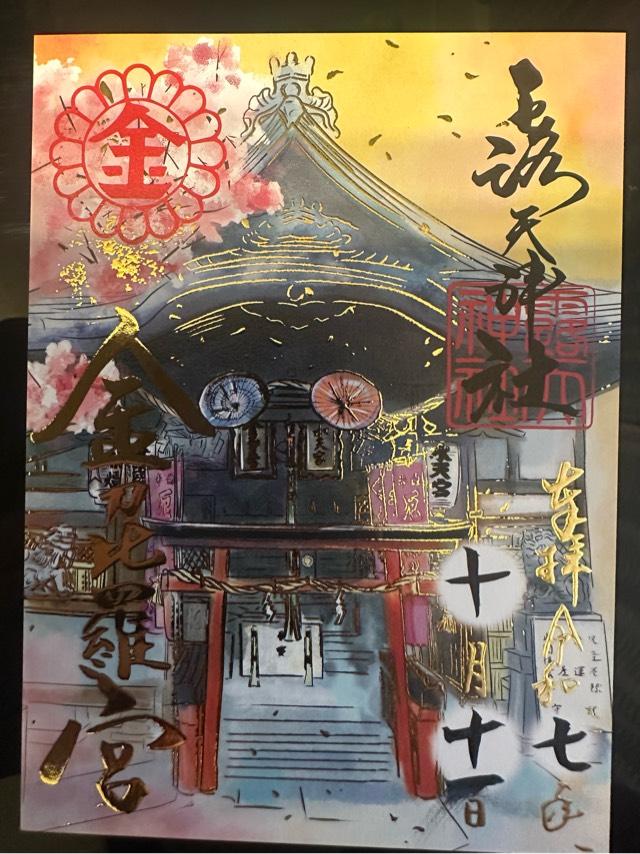 露天神社
奉拝 令和七年
十月十一日
金
金刀比羅宮
水天宮